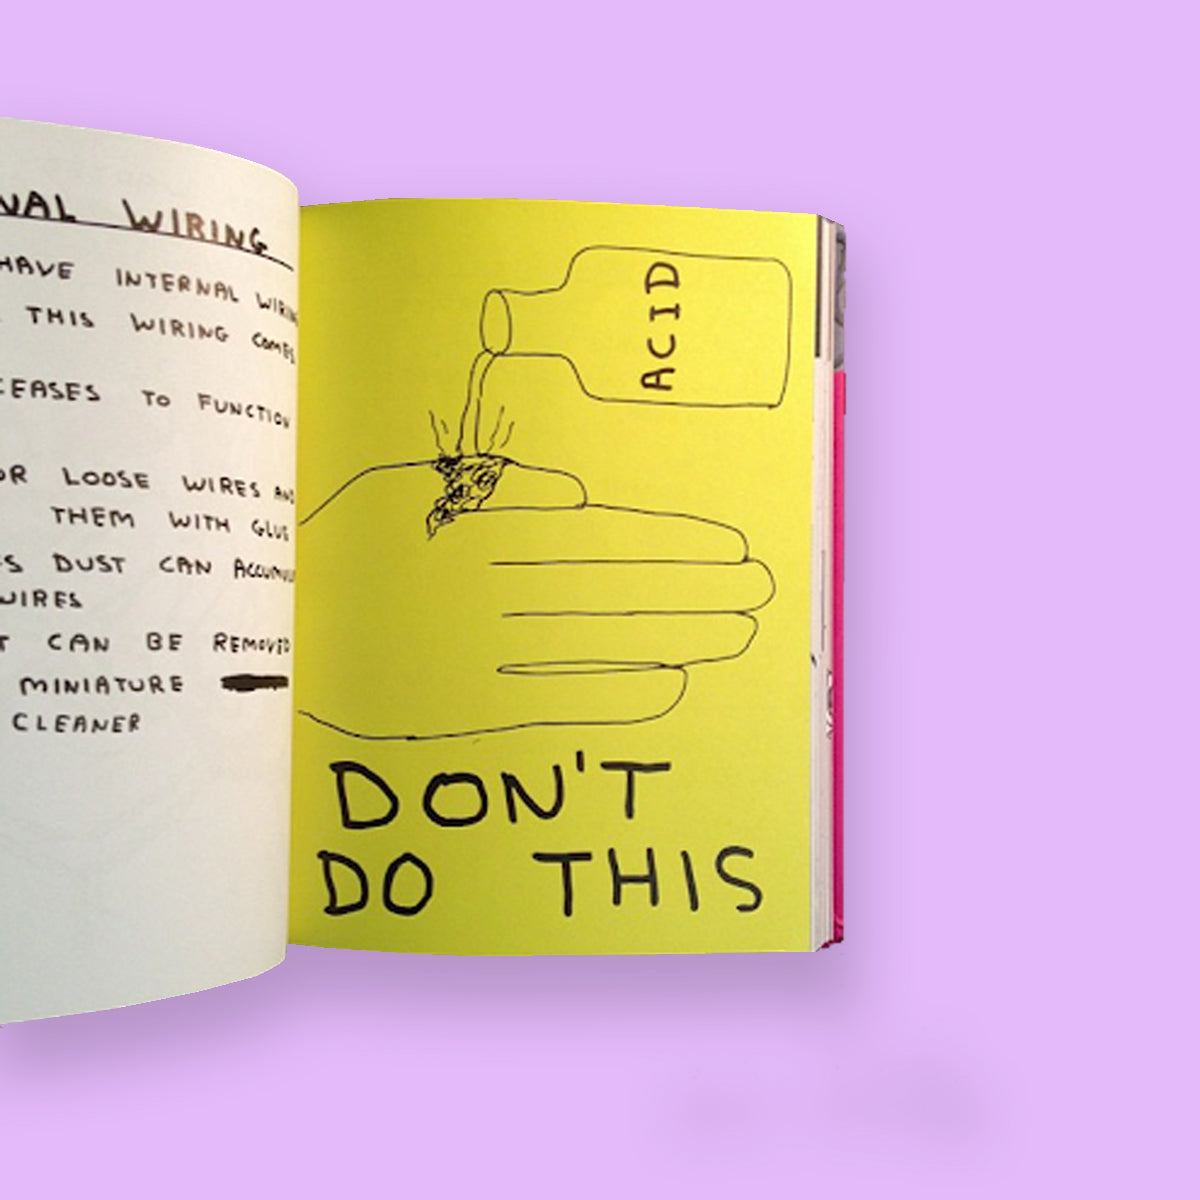 WIRING
HAVE INTERNAL
THIS WIRING COMES
CEASES TO FUNCTION
OR LOOSE WIRES AND
THEM WITH GLUE
DUST CAN
WIRES
CAN BE REMOVED
MINIATURE
CLEANER
ACID
DON'T
DO THIS